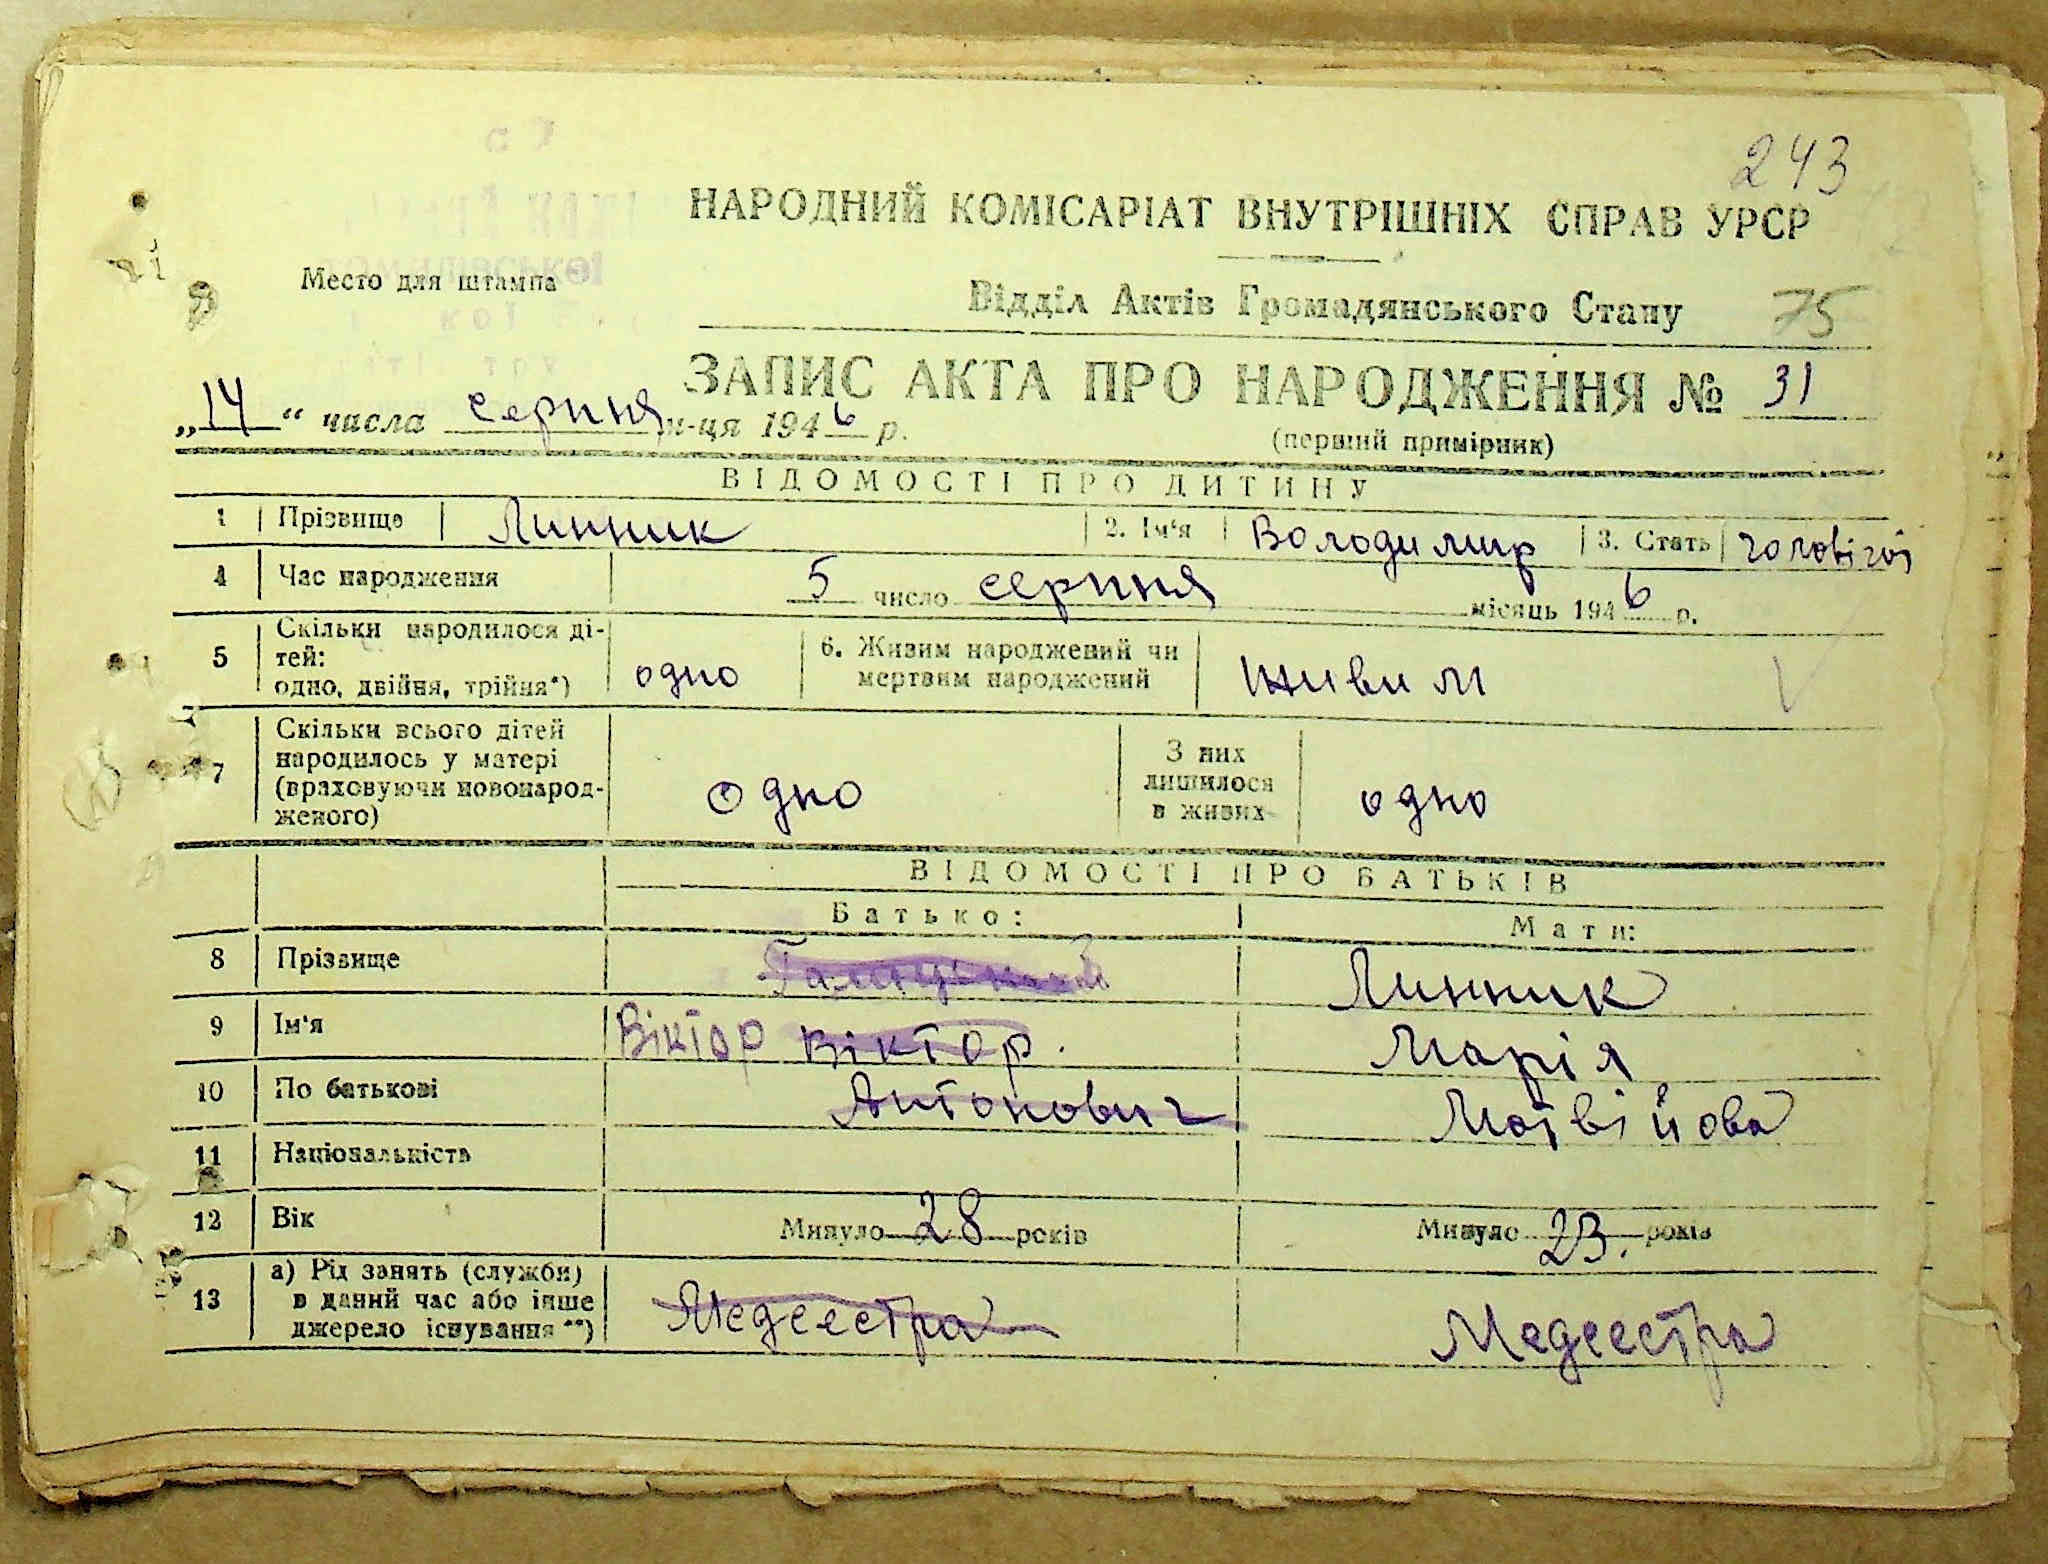 243
НАРОДНИЙ КОМІСАРІАТ ВНУТРІШНІХ СПРАВ УРСР
Место для штампа
Відділ Актів Громадянського Стану 75
ЗАПИС АКТА ПРО НАРОДЖЕННЯ № 31
„14“ числа серпня м-ця 1946 р.
(перший примірник)
ВІДОМОСТІ ПРО ДИТИНУ
1 Прізвище Линник 2. Ім'я Володимир 3. Стать
4 Час народження 5 число серпня місяць 1946 р.
5 Скільки народилося ді-
тей:
одно, двійня, трійня*) одно 6. Живим народжений чи
мертвим народжений живим
7 Скільки всього дітей
народилось у матері
(враховуючи новонарод-
женого) одно З них
лишилося
в живих одно
ВІДОМОСТІ ПРО БАТЬКІВ
Батько: Мати:
8 Прізвище Линник
9 Ім'я Віктор Віктор. Марія
10 По батькові Антонович Матвійова
11 Національність
12 Вік Минуло 28 років Минуло 23. років
13 а) Рід занять (служби)
в даний час або інше
джерело існування**) Медсестра Медсестра